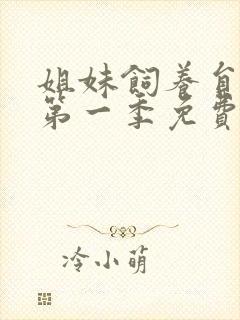 姐妹飼養
第一季免費
冷小萌